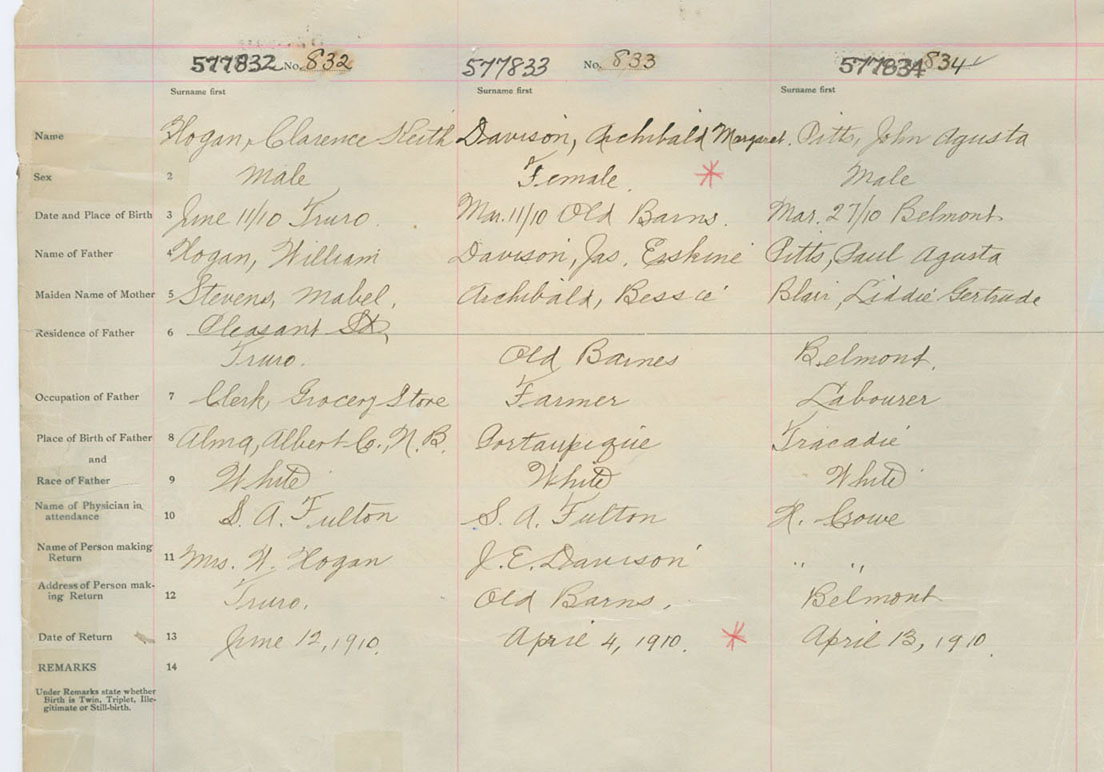 577832 No. 832 577833 No. 833 577834 834
Surname first Surname first Surname first
Name Hogan, Clarence Keith Davison, Archibald Margaret. Pitts, John Agusta
Sex 2 Male Female. Male
Date and Place of Birth 3 June 11/10 Truro. Mar. 11/10 Old Barns. Mar. 27/10 Belmont
Name of Father 4 Hogan, William Davison, Jas. Erskine Pitts, Paul Agusta
Maiden Name of Mother 5 Stevens, Mabel. Archibald, Bessie Blair, Liddie Gertrude
Residence of Father 6 Pleasant St,
Truro. Old Barnes Belmont.
Occupation of Father 7 Clerk, Grocery Store Farmer Labourer
Place of Birth of Father 8 Alma, Albert Co., N.B. Portaupique Tracadie
and
Race of Father 9 White White White
Name of Physician in
attendance 10 S. A. Fulton S. A. Fulton H.
Name of Person making
Return 11 Mrs. W. Hogan J. E. Davison " "
Address of Person mak-
ing Return 12 Truro. Old Barns. Belmont
Date of Return 13 June 12, 1910. April 4, 1910. April 13, 1910.
REMARKS 14
Under Remarks state whether
Birth is Twin, Triplet, Ille-
gitimate or Still-birth.